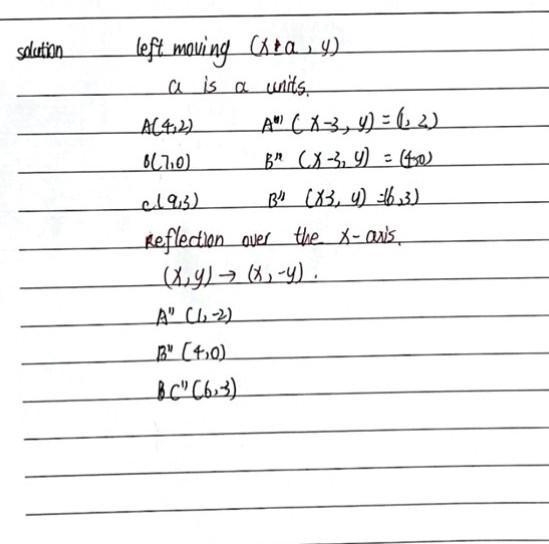 solution left moving (x±a, y)
a is a units.
A(4,2) A''' (x-3, y) = (1, 2)
B(7,0) B'' (x-3, y) = (4,0)
c(9,3) B'' (x3, y) =(6,3)
Reflection over the x-axis.
(x,y) → (x,-y).
A'' (1,-2)
B'' (4,0)
B C'' (6,-3)